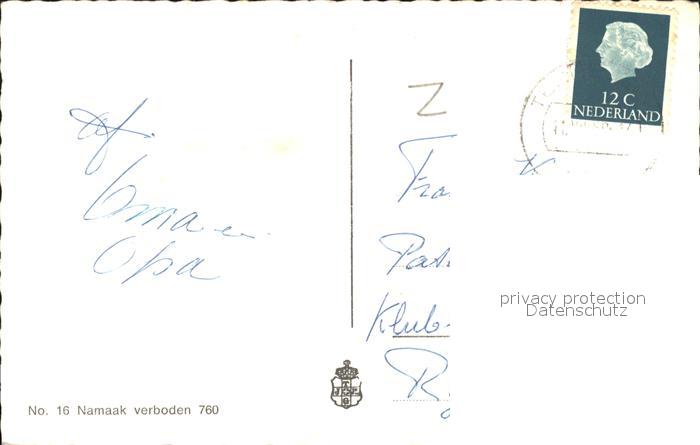 12 C
NEDERLAND
Z
af.
Oma en
Opa
Fra
Pat
Klub-
R
privacy protection
Datenschutz
No. 16 Namaak verboden 760